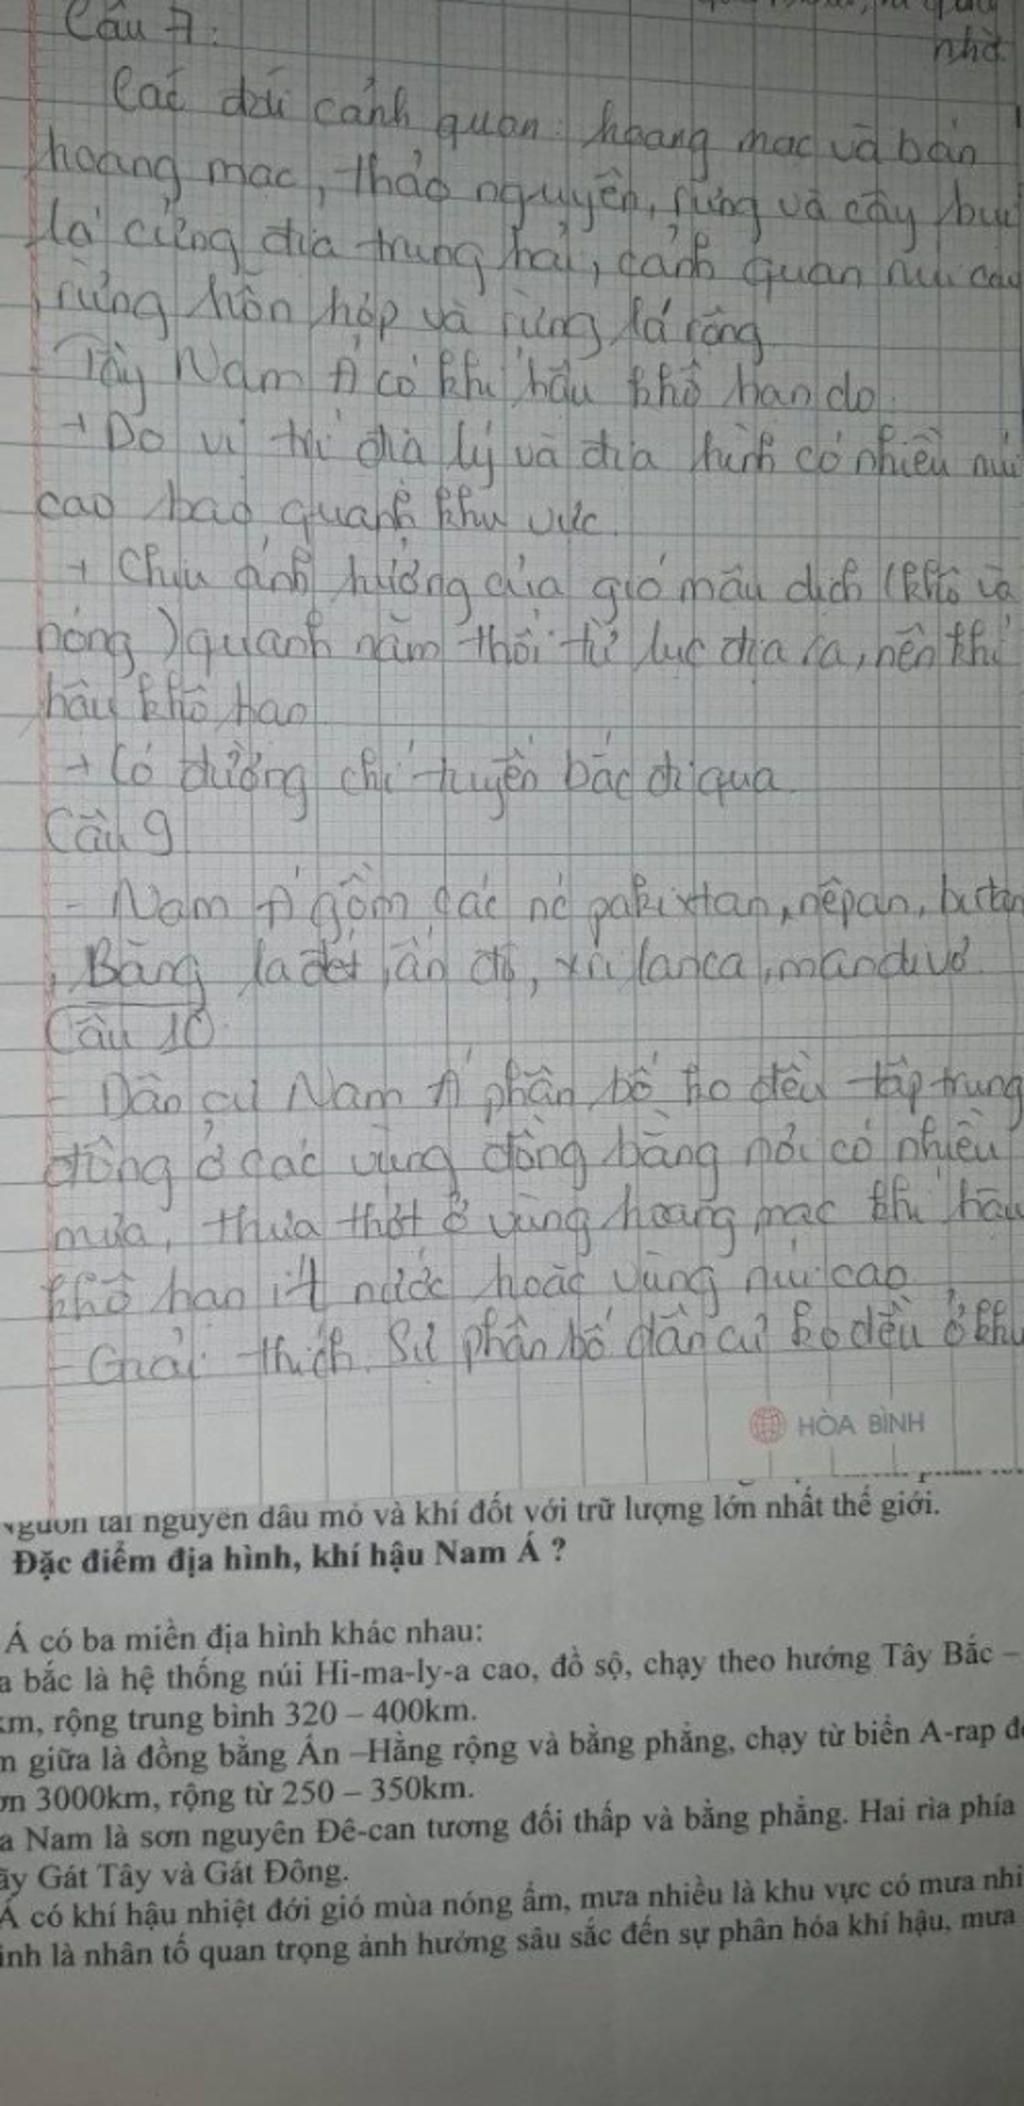 Câu 7:
nhờ
Các đới cảnh quan: hoang mac và bán
hoang mac, thảo nguyên, rừng và cây bụi
lá cứng địa trung hải, cảnh quan núi cao
rừng hỗn hợp và rừng lá rộng
- Tây Nam Á có khí hậu khô han do:
+ Do vị trí địa lý và địa hình có nhiều núi
cao bao quanh khu vưc.
+ Chịu ảnh hưởng của gió mâu dịch (khô và
nóng) quanh năm thổi từ luc địa ra, nên khí
hâu khô han
+ Có đường chí tuyến bắc đi qua.
Câu 9
- Nam Á gồm các nc pakixtan, nêpan, butan
, Băng la đét, ấn độ, xri lanca, mandivơ
Câu 10
- Dân cư Nam Á phân bố ko đều tâp trung
đông ở các vùng đồng bằng nơi có nhiều
mưa, thưa thớt ở vùng hoang mac khí hâu
khô han ít nước hoăc vùng núi cao
- Giải thích. Sự phân bố dân cư ko đều ở khu
HÒA BÌNH
nguồn tài nguyên dầu mỏ và khí đốt với trữ lượng lớn nhất thế giới.
Đặc điểm địa hình, khí hậu Nam Á ?
Á có ba miền địa hình khác nhau:
a bắc là hệ thống núi Hi-ma-ly-a cao, đồ sộ, chạy theo hướng Tây Bắc –
km, rộng trung bình 320 – 400km.
n giữa là đồng bằng Ấn –Hằng rộng và bằng phẳng, chạy từ biển A-rap đ
ơn 3000km, rộng từ 250 – 350km.
a Nam là sơn nguyên Đê-can tương đối thấp và bằng phẳng. Hai rìa phía
ãy Gát Tây và Gát Đông.
Á có khí hậu nhiệt đới gió mùa nóng ẩm, mưa nhiều là khu vực có mưa nhi
ình là nhân tố quan trọng ảnh hưởng sâu sắc đến sự phân hóa khí hậu, mưa